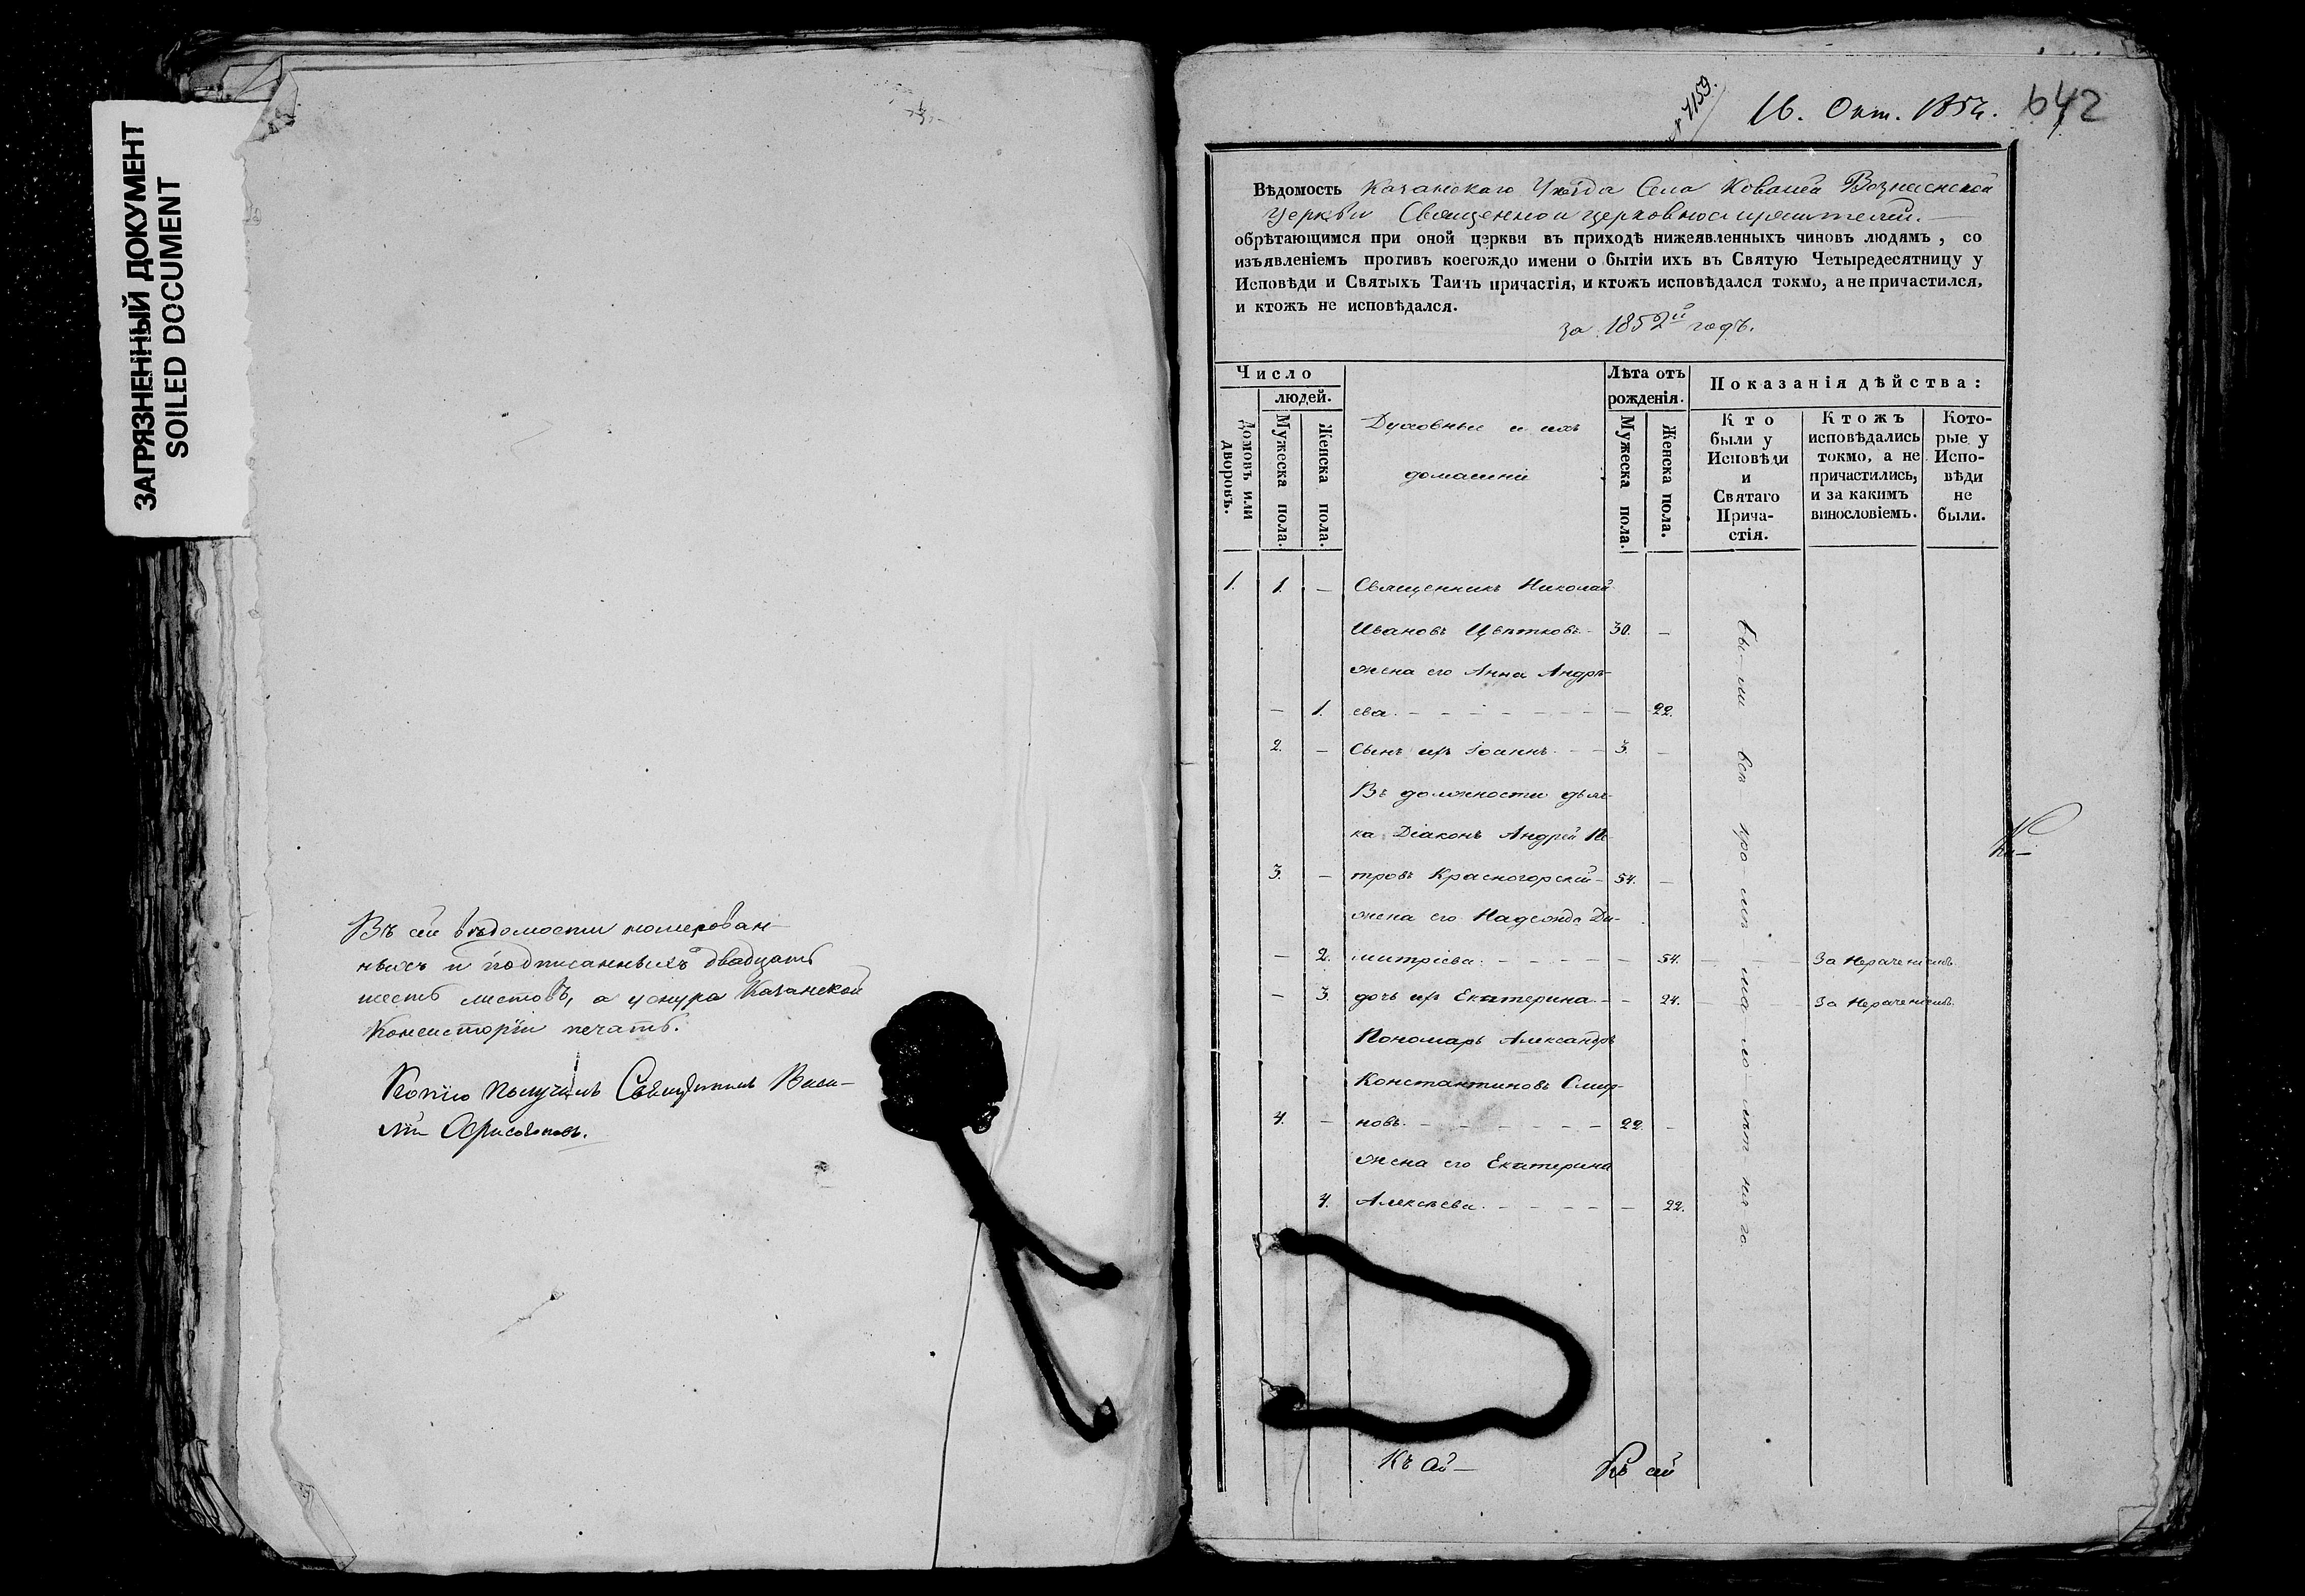 ЗАГРЯЗНЕННЫЙ ДОКУМЕНТ
SOILED DOCUMENT
Въ сей вѣдомости номерован-
ныхъ и подписанныхъ двадцать
шесть листовъ, а у снура Казанской
Консисторіи печать.
Копію получилъ Священникъ Васи-
лій
№ 7159.
16. Окт. 1852.
642
Вѣдомость Казанскаго Уѣзда Села Ковалей Вознесенской
Церкви Священно и церковнослужителей.
обрѣтающимся при оной церкви въ приходѣ нижеявленныхъ чиновъ людямъ, со
изъявленіемъ противъ коегождо имени о бытіи ихъ въ Святую Четыредесятницу у
Исповѣди и Святыхъ Таинъ причастія, и ктожъ исповѣдался токмо, а не причастился,
и ктожъ не исповѣдался.
за 1852й годъ.
Число
людей.
Домовъ или дворовъ.
Мужеска пола.
Женска пола.
Духовные и ихъ
домашніе
Лѣта отъ
рожденія.
Мужеска пола.
Женска пола.
Показанія дѣйства:
Кто
были у
Исповѣди
и
Святаго
Прича-
стія.
Ктожъ
исповѣдались
токмо, а не
причастились,
и за какимъ
винословіемъ.
Кото-
рые у
Испо-
вѣди
не
были.
1. 1. – Священникъ Николай
Ивановъ Цвѣтковъ – 30. –
жена его Анна Андрѣ-
– 1. ева. – – 22.
2. – Сынъ ихъ Іоаннъ – 3. –
Въ должности дьяч-
ка Діаконъ Андрей Пе-
3. – тровъ Красногорскій – 54. –
жена его Надежда Ди-
– 2. митріева. – – 54. – – За нераченіемъ.
– 3. дочь ихъ Екатерина – – 24. – – За нераченіемъ.
Пономарь Александръ
Константиновъ Смир-
4. – новъ. – 22. –
жена его Екатерина
4. Алексѣева. – – 22.
бы-ли всѣ
Къ сей –
Къ сей